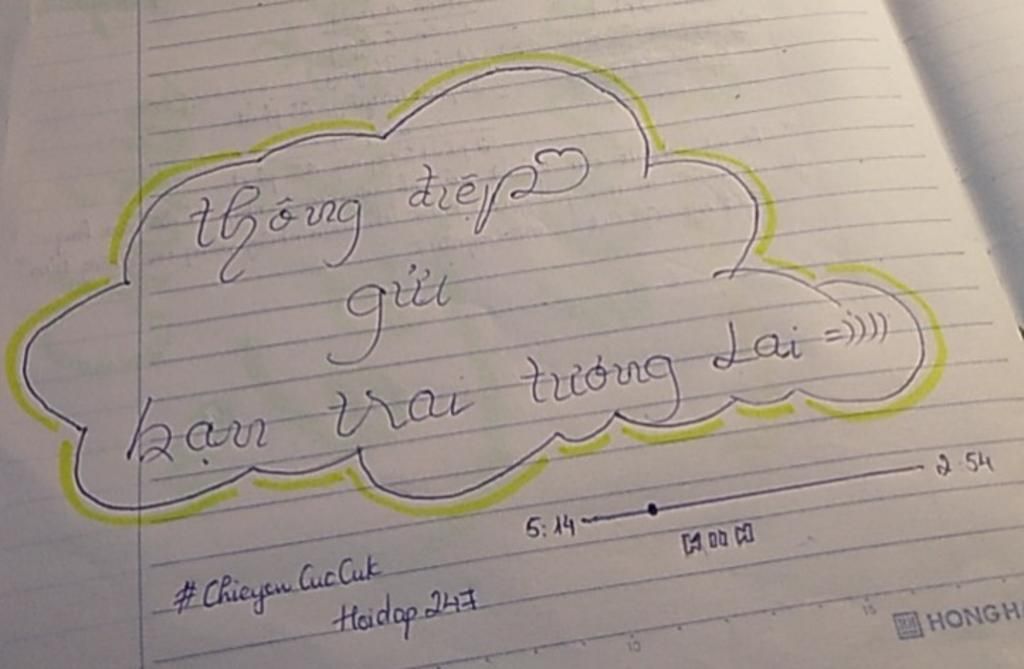 thông điệp
gửi
bạn trai tương lai =))))
5:14 2:54
#ChieyenCucCuk
Hoidap247
10 15 HONGHA